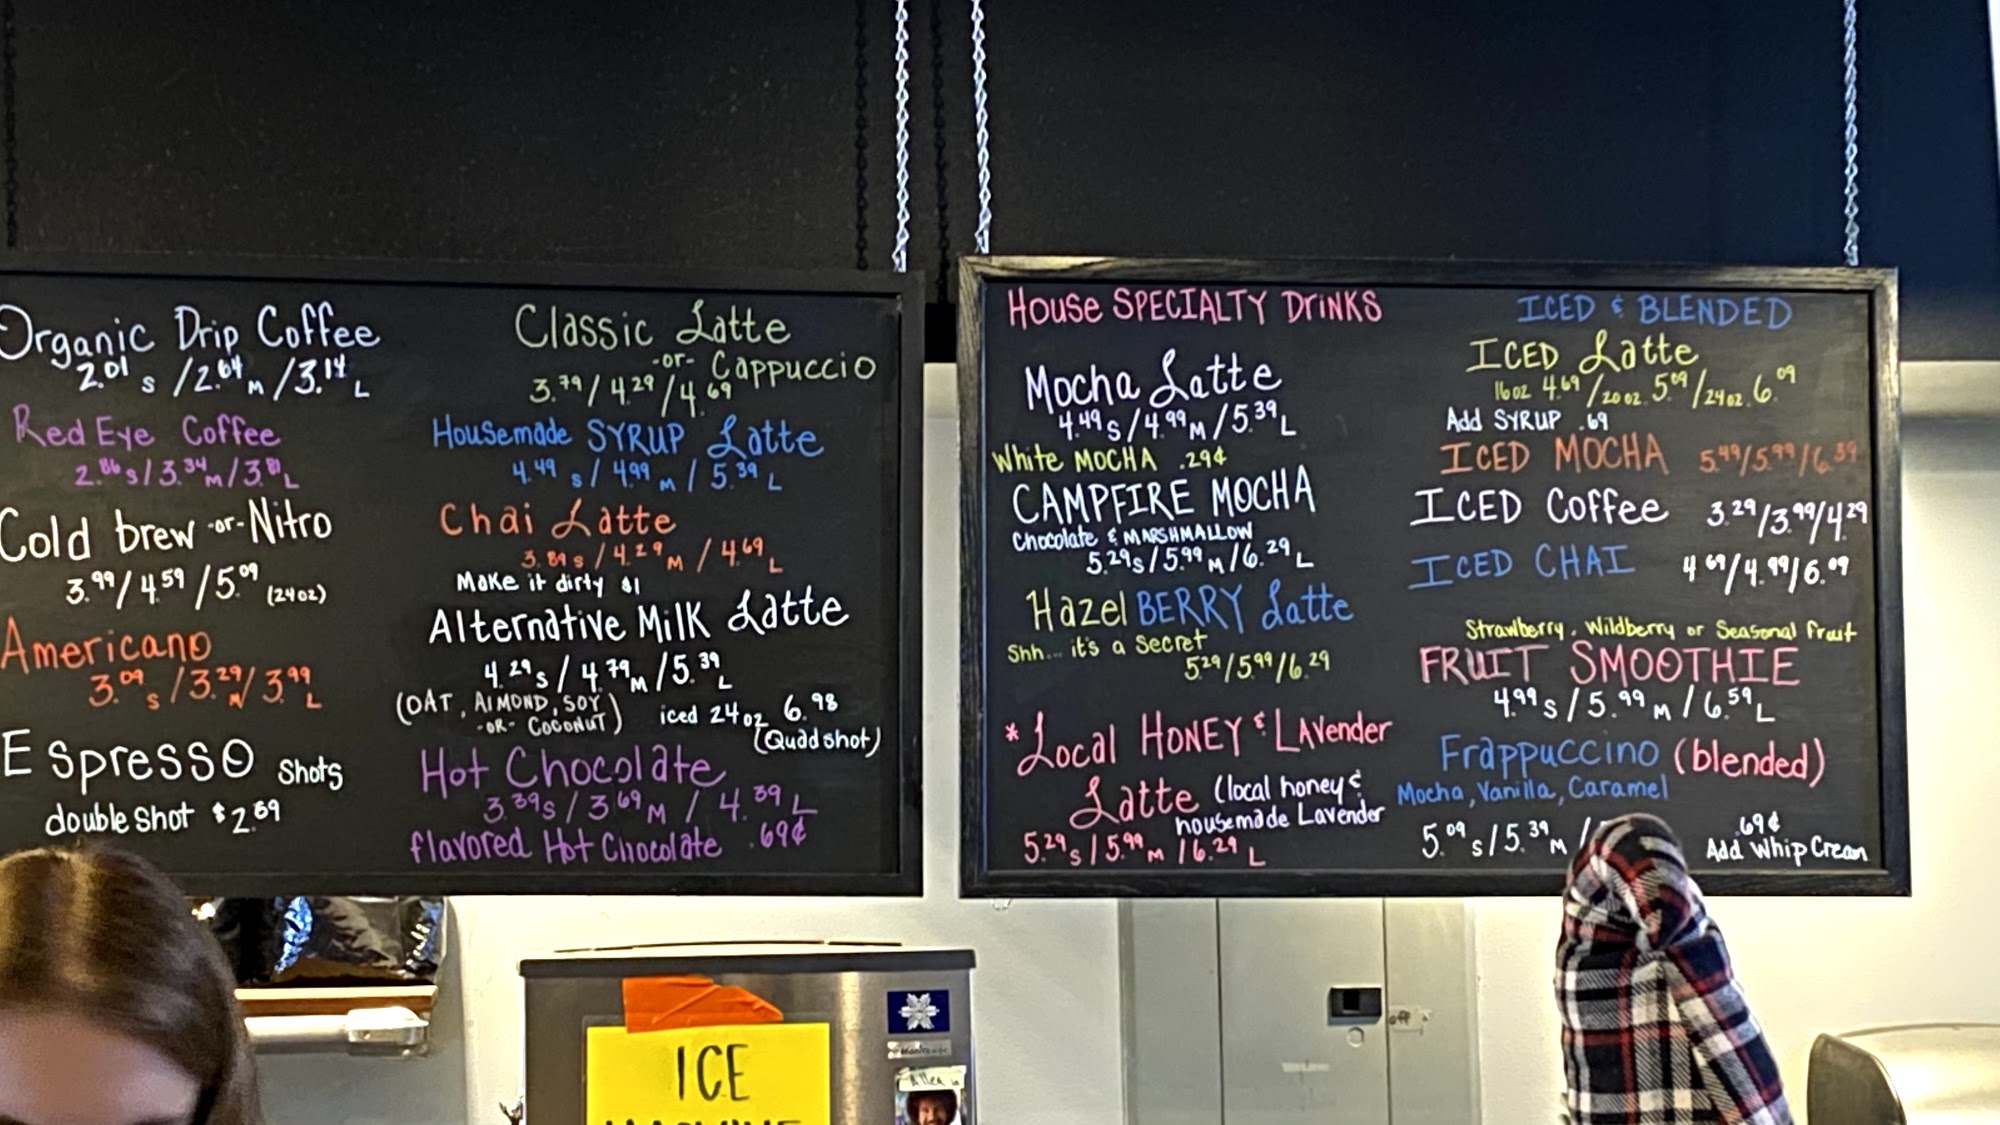 Organic Drip Coffee
2.01 S / 2.64 M / 3.14 L
Red Eye Coffee
2.86 S / 3.34 M / 3.81 L
Cold brew -or- Nitro
3.99 / 4.59 / 5.09 (24oz)
Americano
3.09 S / 3.29 M / 3.99 L
Espresso Shots
double shot $2.69
Classic Latte
-or- Cappuccio
3.79 / 4.29 / 4.69
Housemade SYRUP Latte
4.49 S / 4.99 M / 5.39 L
Chai Latte
3.89 S / 4.29 M / 4.69 L
Make it dirty $1
Alternative Milk Latte
4.29 S / 4.79 M / 5.39 L
(OAT, ALMOND, SOY
-OR- COCONUT)
iced 24oz 6.98
(Quad shot)
Hot Chocolate
3.39 S / 3.69 M / 4.39 L
flavored Hot Chocolate .69¢
House SPECIALTY DrINKS
Mocha Latte
4.49 S / 4.99 M / 5.39 L
White MOCHA .29¢
CAMPFIRE MOCHA
Chocolate & MARSHMALLOW
5.29 S / 5.99 M / 6.29 L
Hazel BERRY Latte
Shh... it's a Secret
5.29 / 5.99 / 6.29
* Local HONEY & LAvender
Latte (local honey &
housemade Lavender
5.29 S / 5.99 M / 6.29 L
ICED & BLENDED
ICED Latte
16oz 4.69 / 20oz 5.69 / 24oz 6.09
Add SYRUP .69
ICED MOCHA 5.49 / 5.99 / 6.39
ICED Coffee 3.29 / 3.99 / 4.29
ICED CHAI 4.69 / 4.99 / 6.09
Strawberry, Wildberry or Seasonal Fruit
FRUIT SMOOTHIE
4.99 S / 5.99 M / 6.59 L
Frappuccino (blended)
Mocha, Vanilla, Caramel
5.09 S / 5.39 M /
.69¢
Add Whip Cream
ICE
MACHINE
off